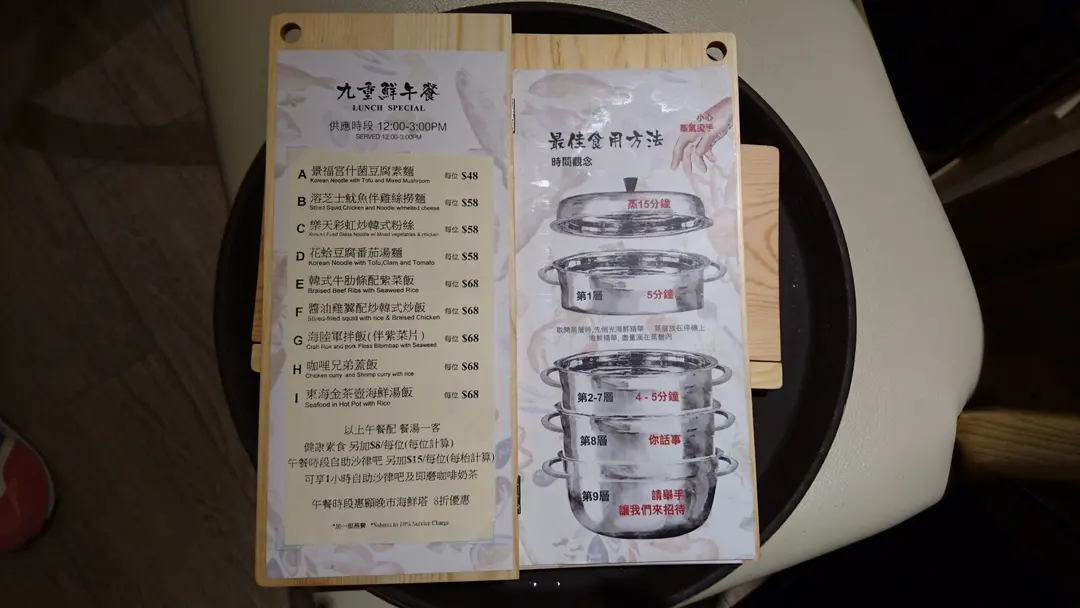 九重鮮午餐
LUNCH SPECIAL
供應時段 12:00-3:00PM
SERVED 12:00-3:00PM
A 景福宮什菌豆腐素麵 每位 $48
Korean Noodle with Tofu and Mixed Mushroom
B 溶芝士魷魚伴雞絲撈麵 每位 $58
Stired Squid,Chicken and Noodle w/melted cheese
C 樂天彩虹炒韓式粉絲 每位 $58
Korean Fried Glass Noodle w/ Mixed vegetables & chicken
D 花蛤豆腐番茄湯麵 每位 $58
Korean Noodle with Tofu,Clam and Tomato
E 韓式牛肋條配紫菜飯 每位 $68
Braised Beef Ribs with Seaweed Rice
F 醬油雞翼配炒韓式炒飯 每位 $68
Stired-fried squid with rice & Braised Chicken
G 海陸軍拌飯(伴紫菜片) 每位 $68
Crab Roe and pork Floss Bibimbap with Seaweed
H 咖哩兄弟蓋飯 每位 $68
Chicken curry and Shrimp curry with rice
I 東海金茶壺海鮮湯飯 每位 $68
Seafood in Hot Pot with Rice
以上午餐配 餐湯一客
健康素食 另加$8/每位(每位計算)
午餐時段自助沙律吧 另加$15/每位(每枱計算)
可享1小時自助沙律吧及即磨咖啡奶茶
午餐時段惠顧晚市海鮮塔 8折優惠
*加一服務費 *Subject to 10% Service Charge
小心
蒸氣燙手
最佳食用方法
時間觀念
蒸15分鐘
第1層 5分鐘
海鮮精華, 盡量滴在蒸籠內
第2-7層 4 - 5分鐘
第8層 你話事
第9層 請舉手
讓我們來招待